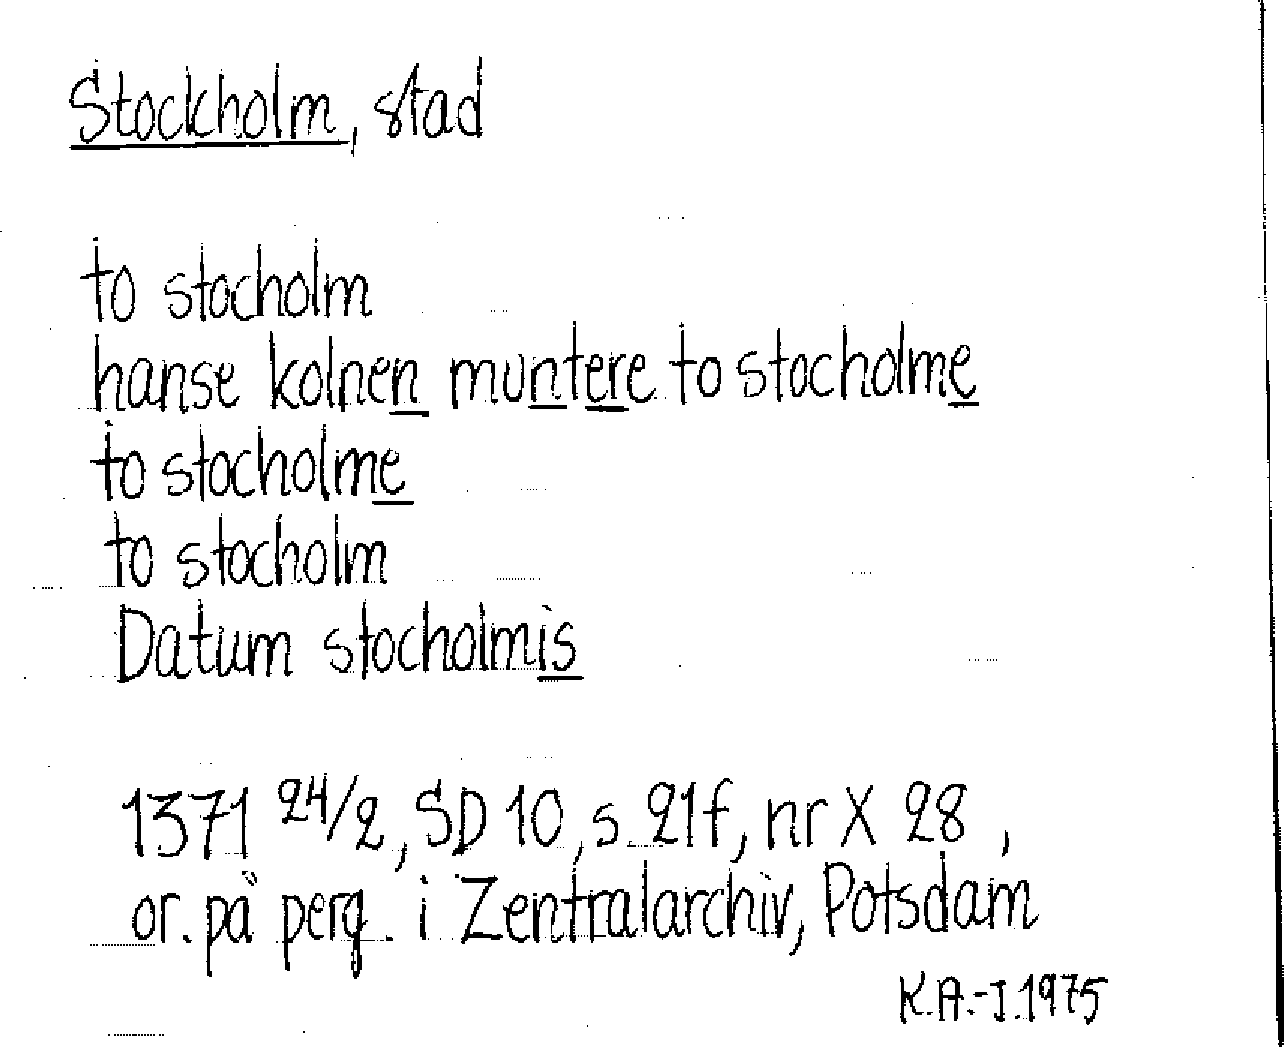 Stockholm, stad
to stocholm
hanse kolnen muntere to stocholme
to stocholme
to stocholm
Datum stocholmis
1371 24/2, SD 10, s. 21f, nr X 28,
or. på perg. i Zentralarchiv, Potsdam
K.A.-I.1975